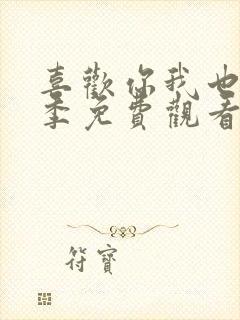 喜歡你我也
季免費觀看
符寶